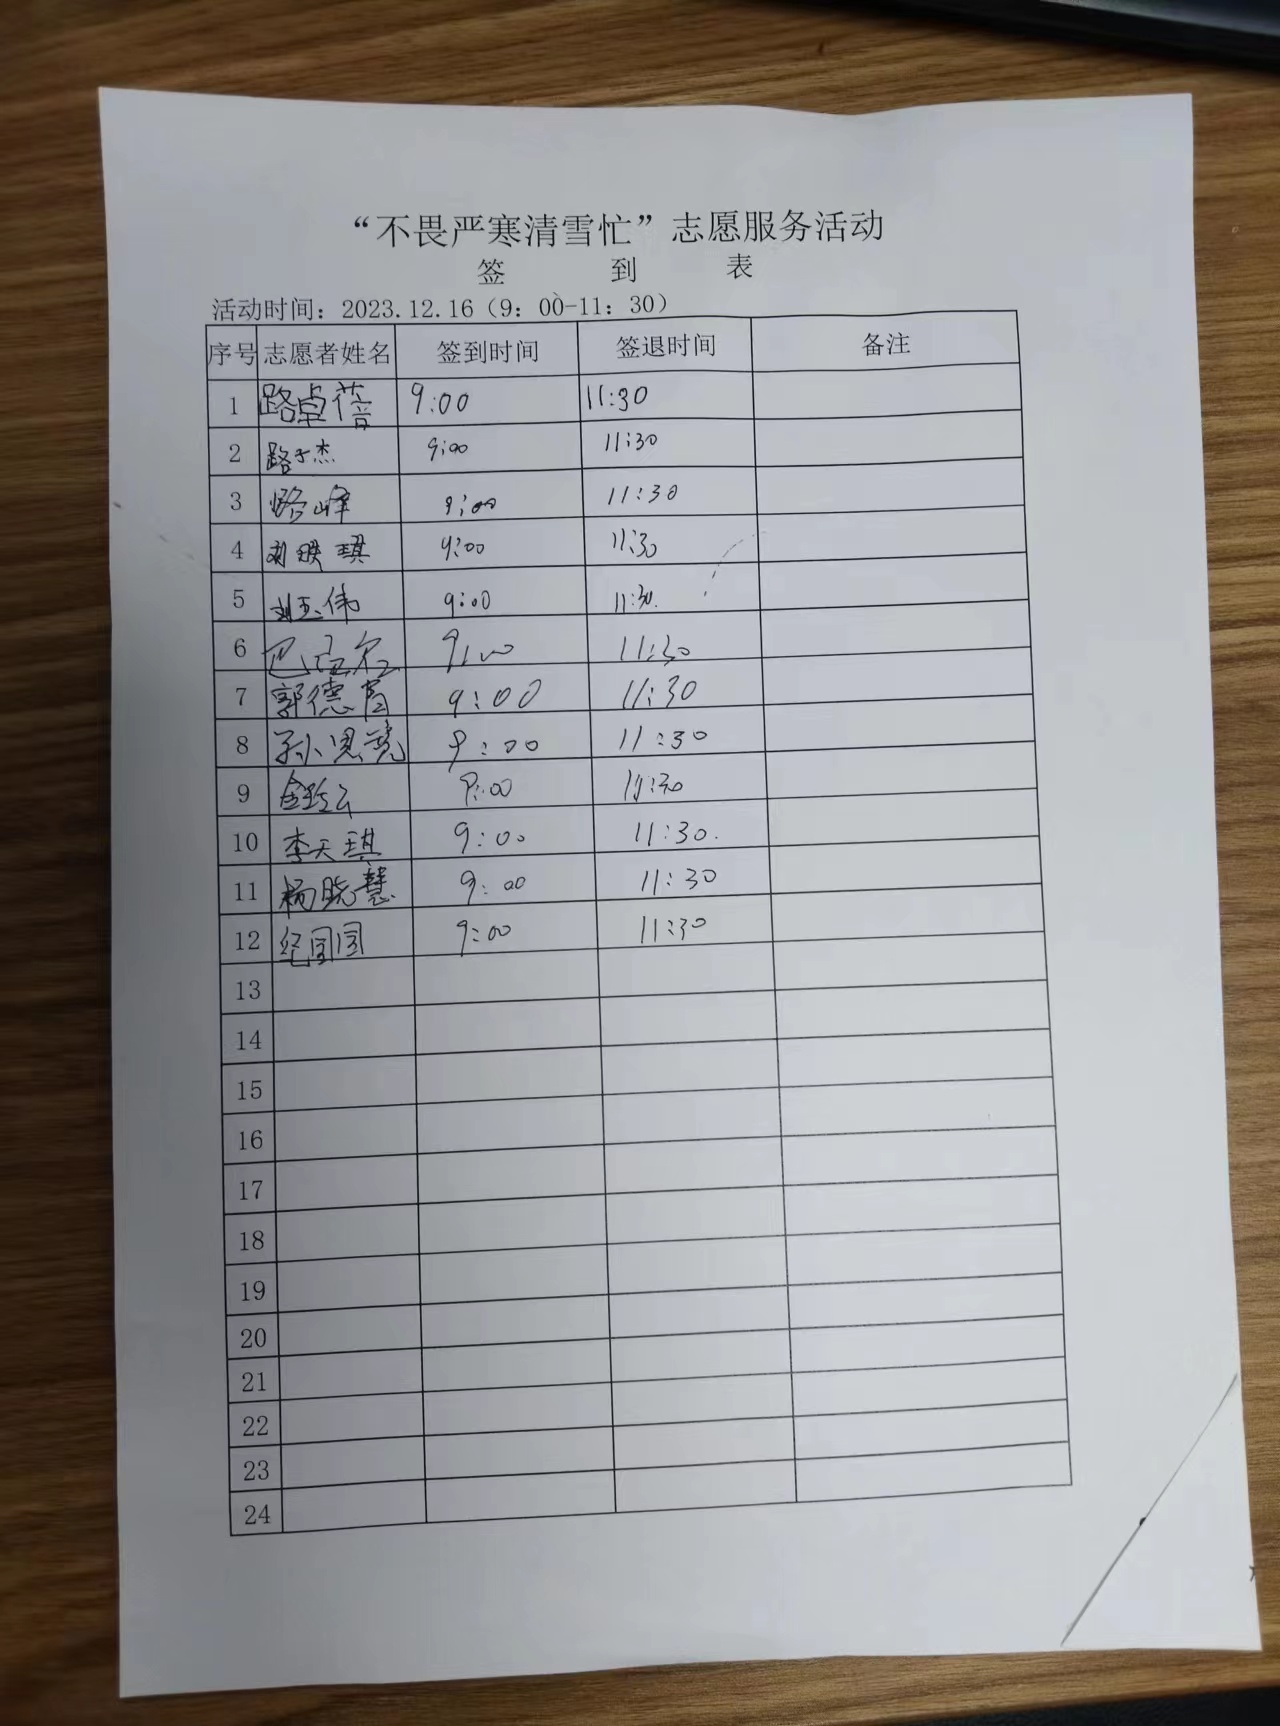 “不畏严寒清雪忙”志愿服务活动
签 到 表
活动时间：2023.12.16（9：00-11：30）
序号 志愿者姓名 签到时间 签退时间 备注
1 路卓蓓 9:00 11:30
2 路子杰 9:00 11:30
3 路峰 9:00 11:30
4 琪 9:00 11:30
5 刘玉伟 9:00 11:30
6 巴 9:00 11:30
7 郭德 9:00 11:30
8 孙思 9:00 11:30
9 金玲云 9:00 11:30
10 李天琪 9:00 11:30.
11 杨晓慧 9:00 11:30
12 纪圆圆 9:00 11:30
13
14
15
16
17
18
19
20
21
22
23
24